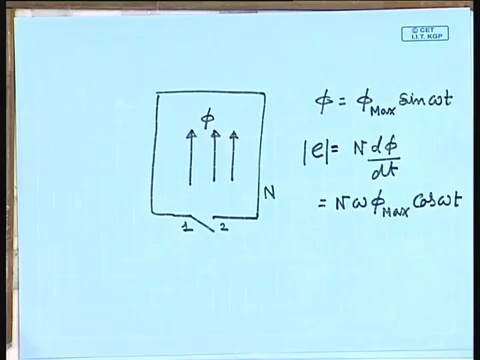 © CET
I.I.T. KGP
ϕ = ϕMax sin ωt
ϕ
|e| = N dϕ/dt
N
= N ω ϕMax Cos ωt
1 2